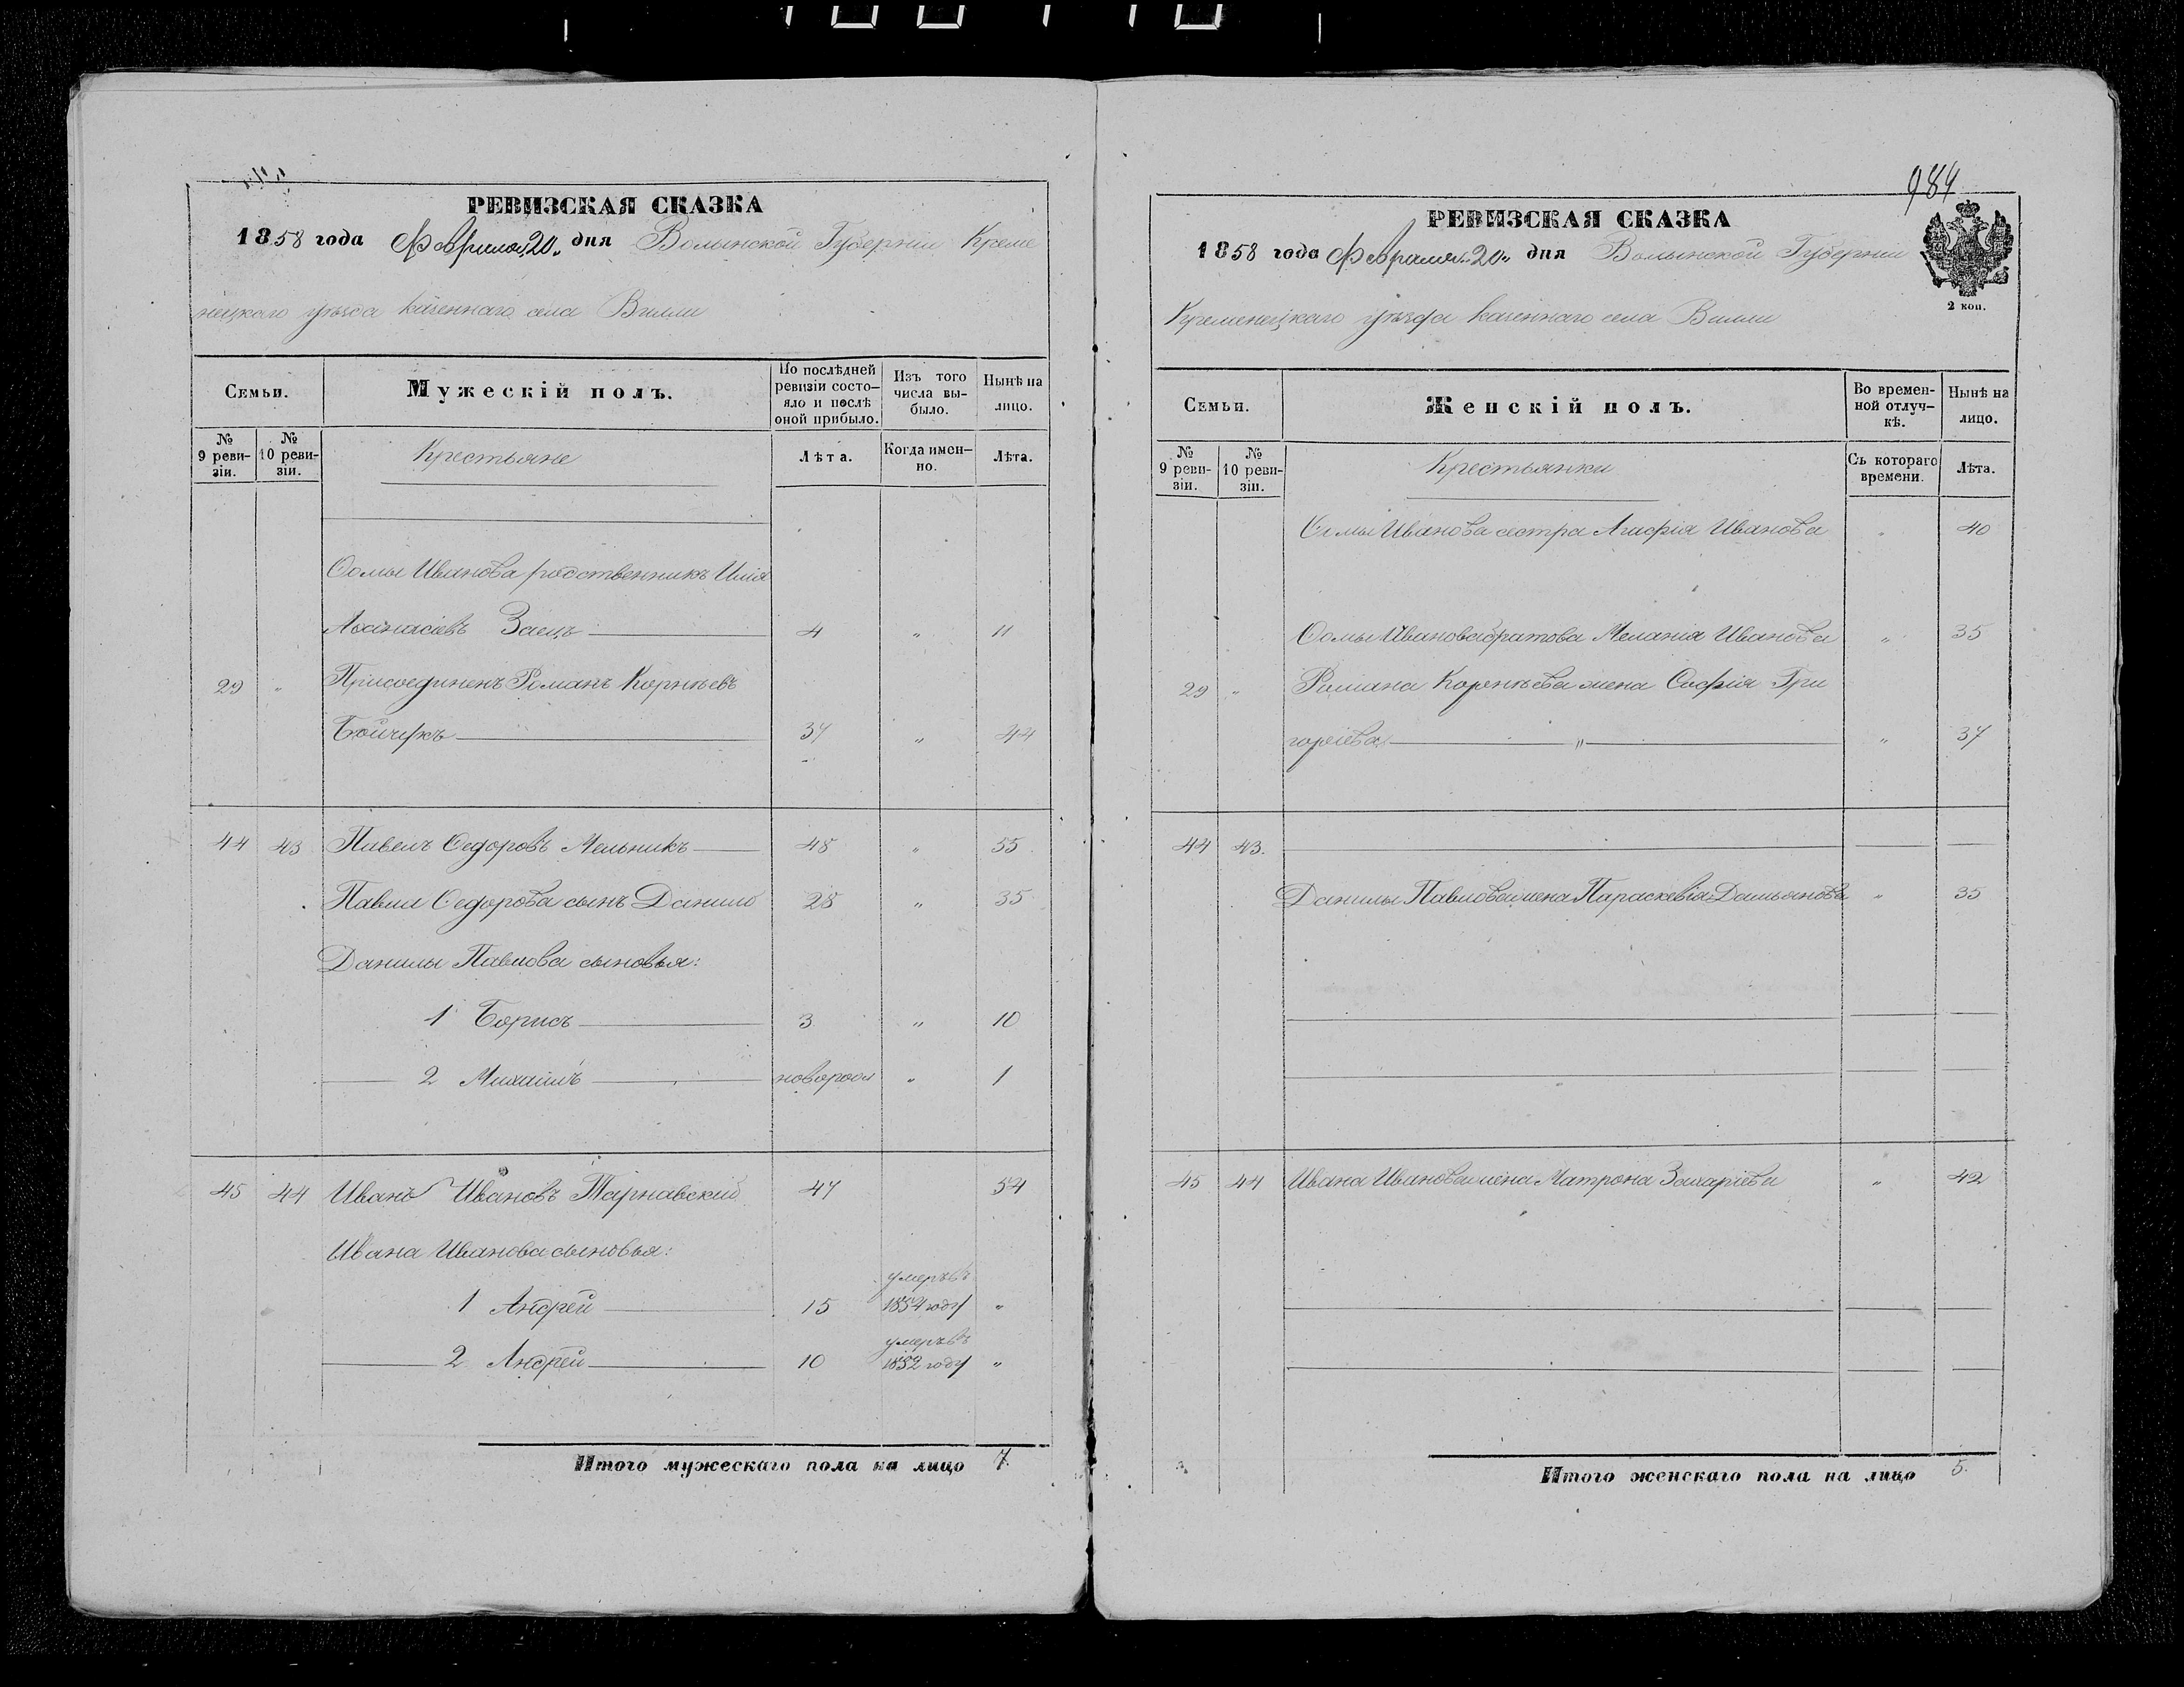 РЕВИЗСКАЯ СКАЗКА
1858 года Февраля „20„ дня Волынской Губерніи Креме
нецкаго уѣзда казеннаго села Вилли
Семьи.
Мужескій полъ.
По послѣдней ревизіи состо-
яло и послѣ оной прибыло.
Изъ того числа вы-
было.
Нынѣ на лицо.
№ 9 реви-
зіи.
№ 10 реви-
зіи.
Крестьяне
Лѣта.
Когда имен-
но.
Лѣта.
Ѳомы Иванова родственникъ Илія
Аѳанасіевъ Заецъ 4 „ 11
29 „ Присоединенъ Романъ Корнѣевъ
Бойчукъ 37 „ 44
44 43 Павелъ Ѳедоровъ Мельникъ 48 „ 55
Павла Ѳедорова сынъ Данило 28 „ 35
Данилы Павлова сыновья:
1 Борисъ 3 „ 10
2 Михаилъ новорож „ 1
45 44 Иванъ Ивановъ Тарнавскій 47 54
Ивана Иванова сыновья:
1 Андрей 15 умеръ въ 1854 году „
2 Андрей 10 умеръ въ 1852 году „
Итого мужескаго пола на лицо 7.
984
РЕВИЗСКАЯ СКАЗКА
1858 года Февраля „20„ дня Волынской Губерніи
2 коп.
Кременецкаго уѣзда казеннаго села Вилли
Семьи.
Женскій полъ.
Во времен-
ной отлуч-
кѣ.
Нынѣ на лицо.
№ 9 реви-
зіи.
№ 10 реви-
зіи.
Крестьянки
Съ котораго времени.
Лѣта.
Ѳомы Иванова сестра Агафія Иванова „ 40
Ѳомы Иванова братова Меланія Иванова „ 35
29 „ Романа Корнѣева жена Софія Гри
горіева „ „ 37
44 43.
Данилы Павлова жена Параскевія Дамьянова „ 35
45 44 Ивана Иванова жена Матрона Захаріева „ 42
Итого женскаго пола на лицо 5.